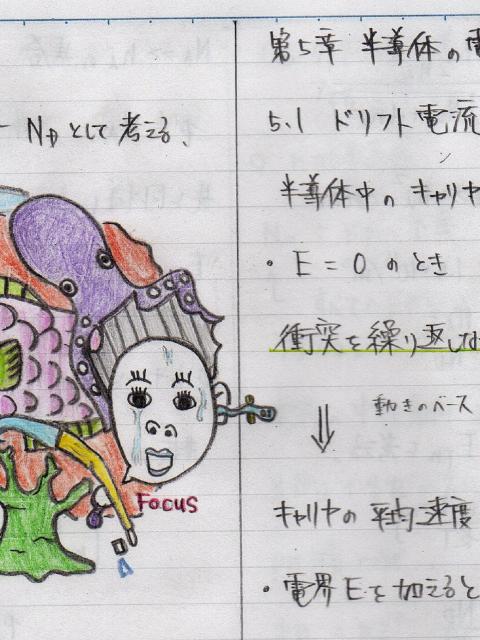 N_D として考える、
FOCUS
第5章 半導体の電
5.1 ドリフト電流
半導体中のキャリヤ
・E = 0 のとき
衝突を繰り返しな
動きのベース
⇓
キャリヤの平均速度
・電界 E を加えると